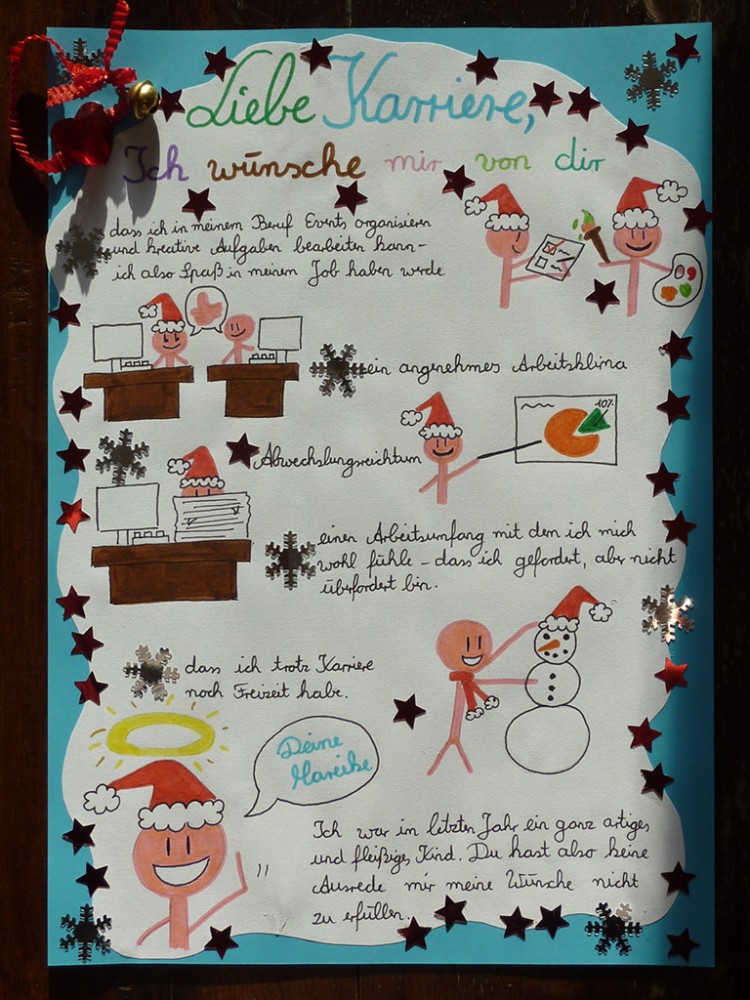 Liebe Karriere,
Ich wünsche mir von dir
dass ich in meinem Beruf Events organisieren
und kreative Aufgaben bearbeiten kann -
ich also Spaß in meinem Job haben werde
ein angenehmes Arbeitsklima
10%
Abwechslungsreichtum
einen Arbeitsumfang mit dem ich mich
wohl fühle - dass ich gefordert, aber nicht
überfordert bin.
dass ich trotz Karriere
noch Freizeit habe.
Deine
Mareike
Ich war im letzten Jahr ein ganz artiges
und fleißiges Kind. Du hast also keine
Ausrede mir meine Wünsche nicht
zu erfüllen.